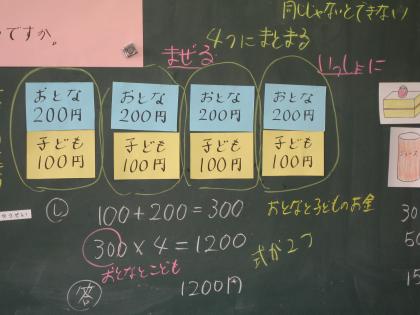 同じじゃないとできない
ですか。
まぜる
4つにまとまる
いっしょに
おとな
200円
子ども
100円
おとな
200円
子ども
100円
おとな
200円
子ども
100円
おとな
200円
子ども
100円
し
100+200=300
おとなと子どものお金
300×4=1200
式が2つ
おとなとこども
答
1200円